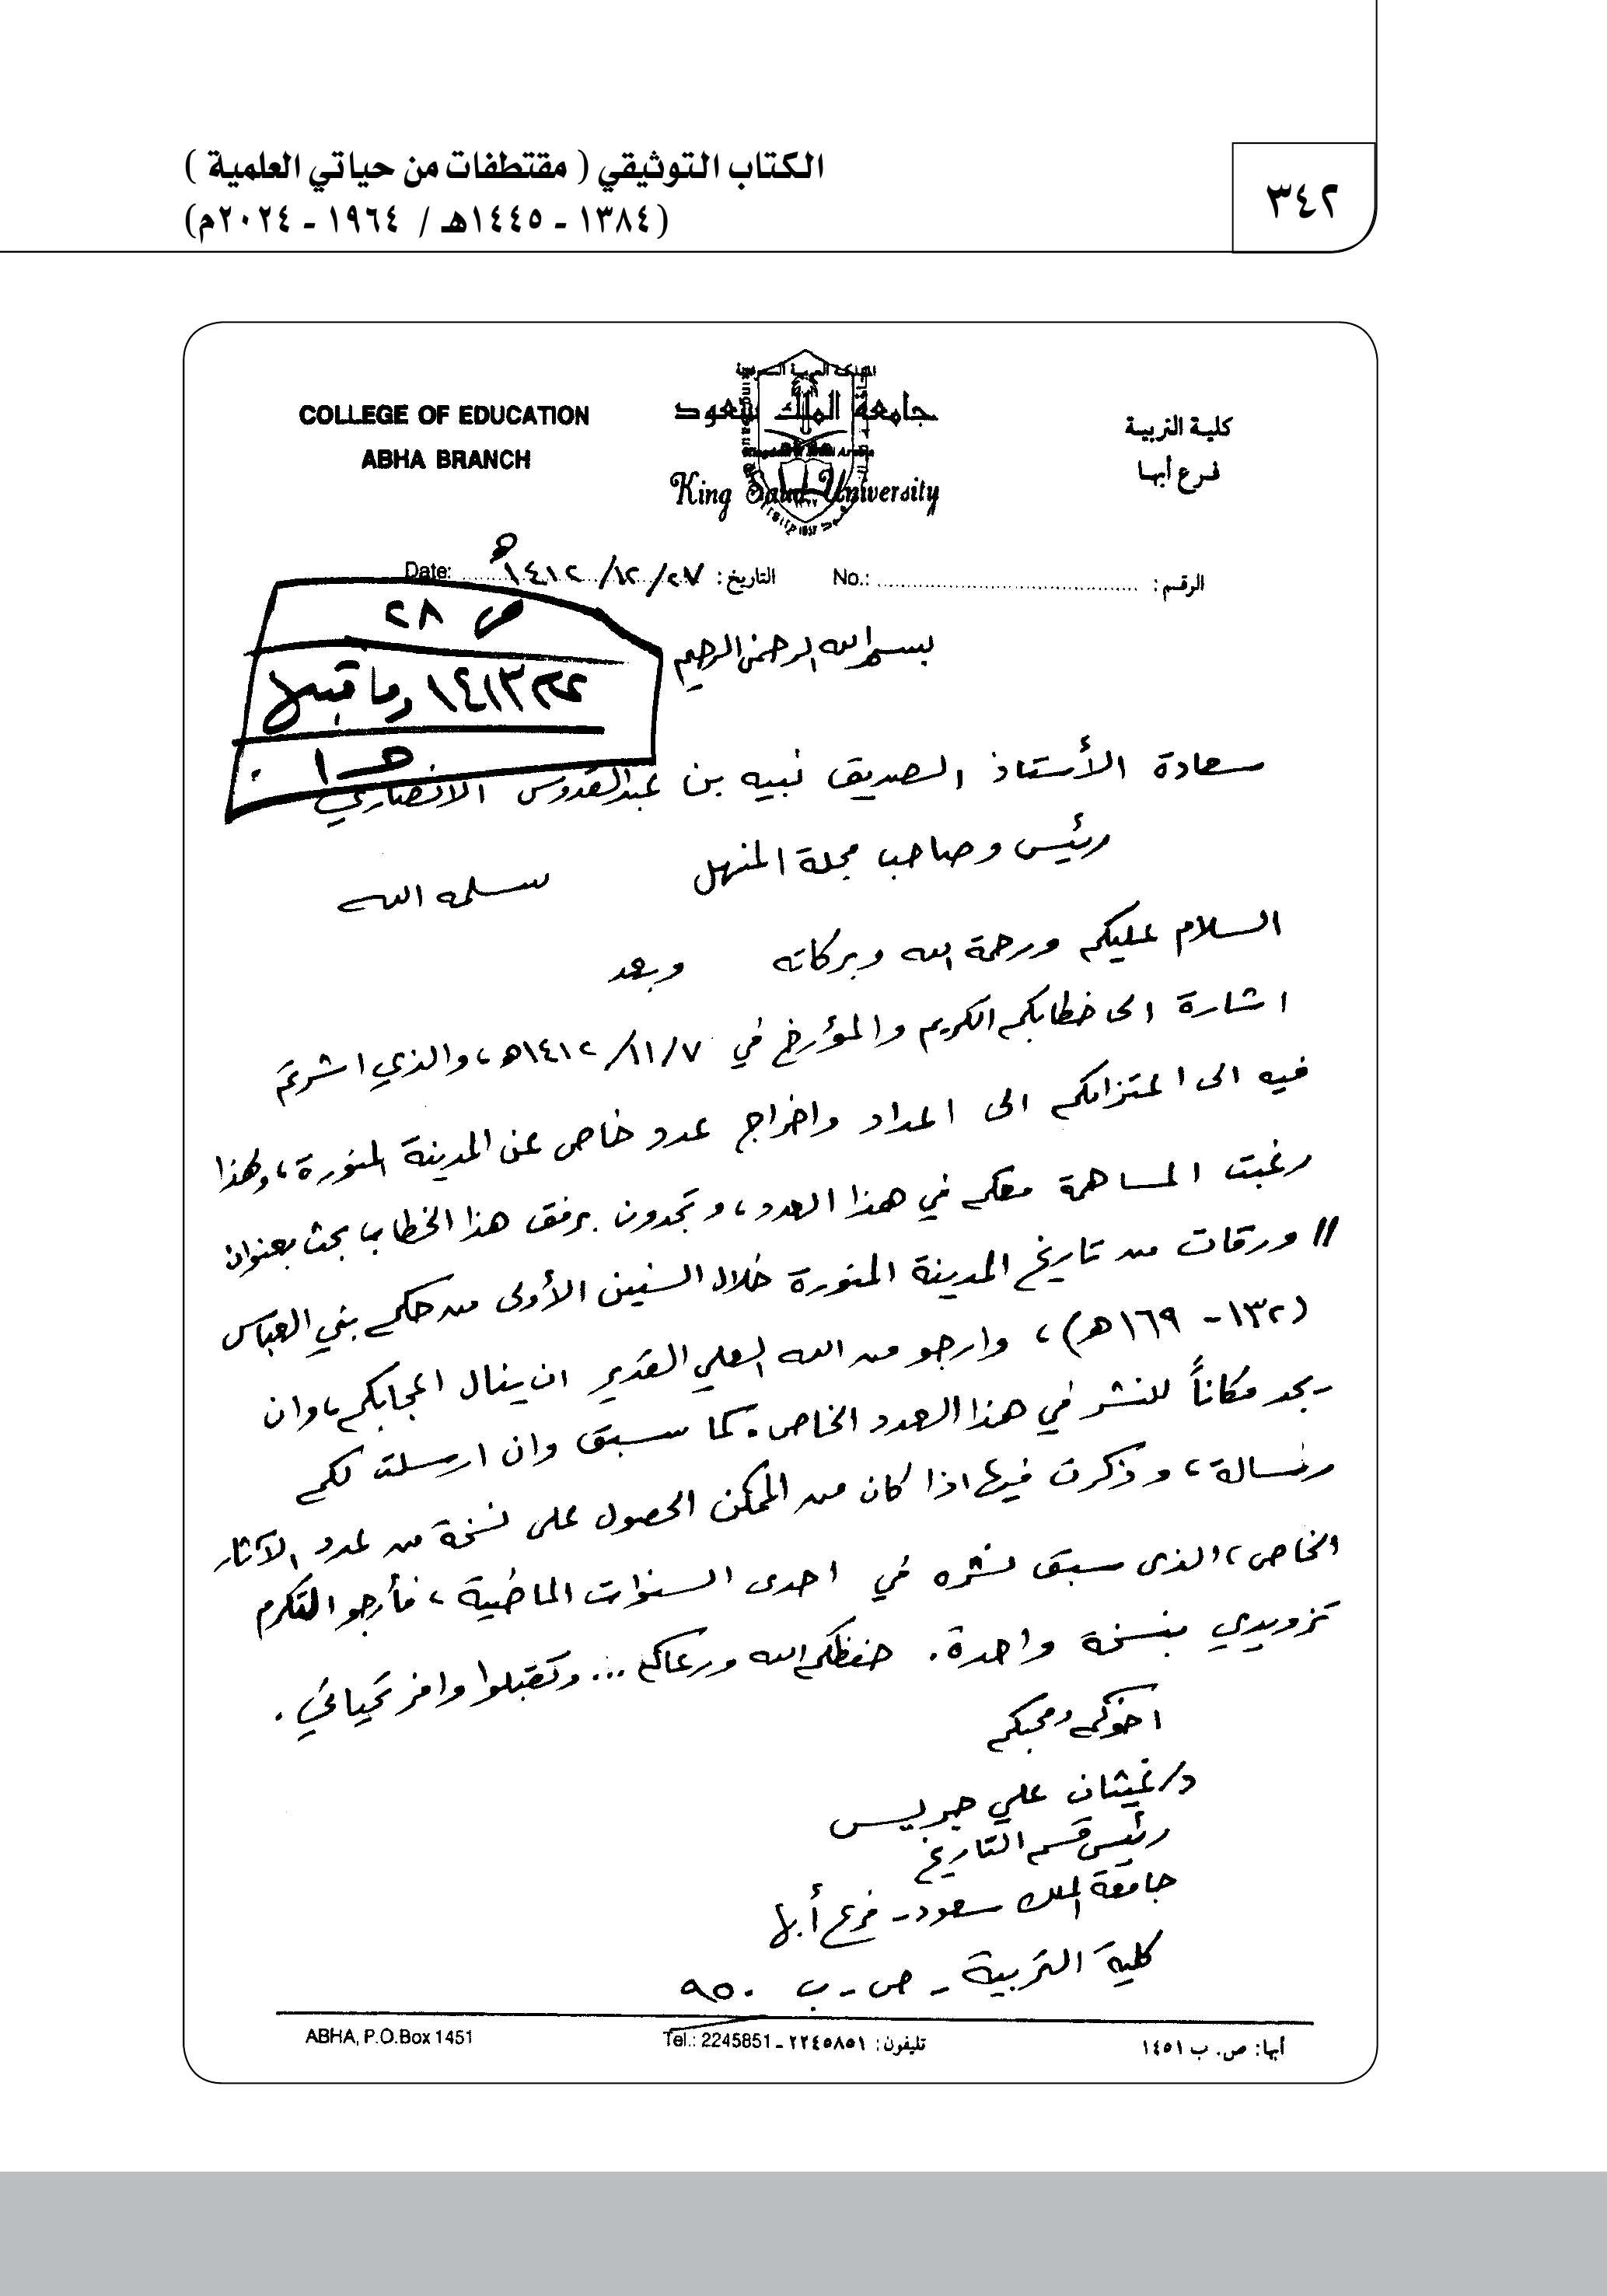 الكتاب التوثيقي ( مقتطفات من حياتي العلمية )
(١٣٨٤ ـ ١٤٤٥هـ / ١٩٦٤ ـ ٢٠٢٤م)
٣٤٢
COLLEGE OF EDUCATION
ABHA BRANCH
المملكة العربية السعودية
جامعة الملك سعود
King Saud University
كلية التربية
فرع أبها
الرقم : No.:
التاريخ : ١٤١٢/١٢/٢٧هـ Date:
ص ٢٨
١٤١٣ وما قبلها
بسم الله الرحمن الرحيم
سعادة الأستاذ الصديق نبيه بن عبدالقدوس الانصاري
رئيس وصاحب مجلة المنهل سلمه الله
السلام عليكم ورحمة الله وبركاته وبعد
اشارة الى خطابكم الكريم والمؤرخ في ١٤١٢/١١/٧هـ، والذي اشرتم
فيه الى اعتزامكم الى اعداد واخراج عدد خاص عن المدينة المنورة، ولهذا
رغبت المساهمة معكم في هذا العدد، وتجدون برفق هذا الخطاب بحث بعنوان
" ورقات من تاريخ المدينة المنورة خلال السنين الأولى من حكم بني العباس
(١٣٢- ١٦٩هـ)، وارجو من الله العلي القدير ان ينال اعجابكم، وان
يجد مكاناً للنشر في هذا العدد الخاص. كما سبق وان ارسلت لكم
رسالة، وذكرت فيها اذا كان من الممكن الحصول على نسخة من عدد الآثار
الخاص، الذى سبق نشره في احدى السنوات الماضية، فأرجو التكرم
تزويدي بنسخة واحدة. حفظكم الله ورعاكم ... وتقبلوا وافر تحياتي.
اخوكم ومحبكم
د/ غيثان علي جريس
رئيس قسم التاريخ
جامعة الملك سعود- فرع أبها
كلية التربية - ص - ب ٩٥٠
ABHA, P.O.Box 1451
تليفون : ٢٢٤٥٨٥١ ـ Tel.: 2245851
أبها: ص. ب ١٤٥١